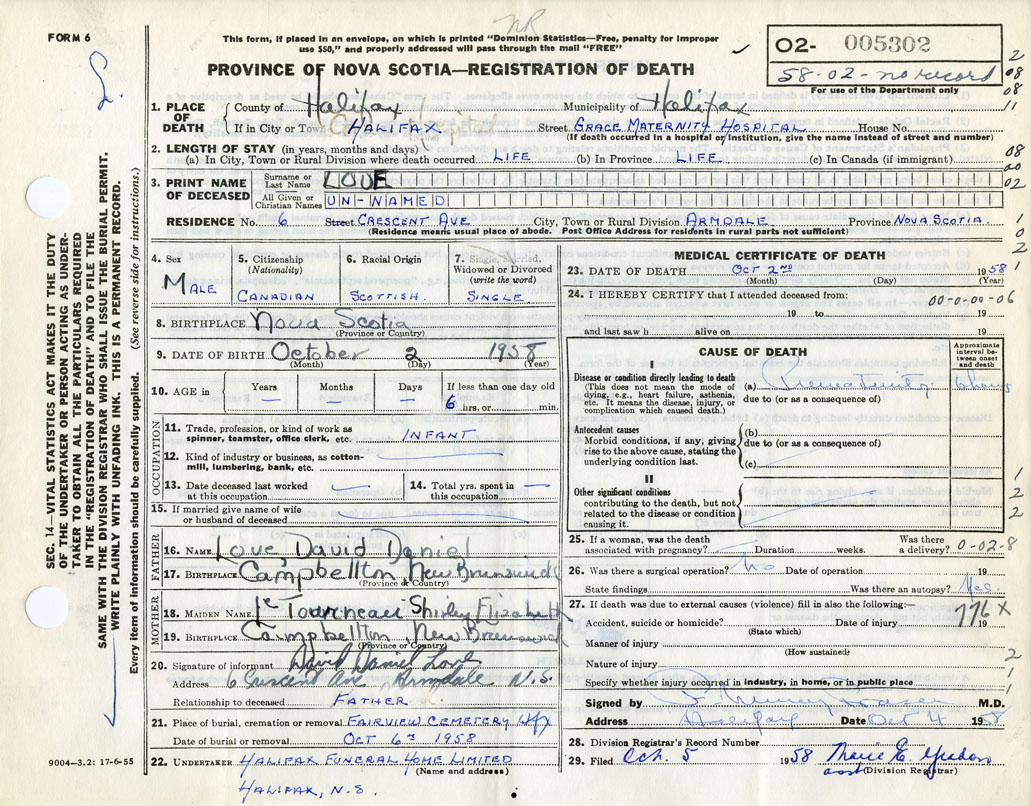 NR
FORM 6
This form, if placed in an envelope, on which is printed "Dominion Statistics—Free, penalty for improper
use $50," and properly addressed will pass through the mail "FREE"
02- 005302
58-02-no record
For use of the Department only
PROVINCE OF NOVA SCOTIA—REGISTRATION OF DEATH
1. PLACE OF DEATH
County of Halifax Municipality of Halifax
If in City or Town HALIFAX Street GRACE MATERNITY HOSPITAL House No.
(If death occurred in a hospital or institution, give the name instead of street and number)
2. LENGTH OF STAY (in years, months and days)
(a) In City, Town or Rural Division where death occurred LIFE (b) In Province LIFE (c) In Canada (if immigrant)
3. PRINT NAME OF DECEASED
Surname or Last Name LOVE
All Given or Christian Names UN-NAMED
RESIDENCE No. 6 Street CRESCENT AVE City, Town or Rural Division ARMDALE Province NOVA SCOTIA
(Residence means usual place of abode. Post Office Address for residents in rural parts not sufficient)
4. Sex MALE
5. Citizenship (Nationality) CANADIAN
6. Racial Origin SCOTTISH
7. Single, Married, Widowed or Divorced (write the word) SINGLE
8. BIRTHPLACE Nova Scotia
(Province or Country)
9. DATE OF BIRTH October 2 1958
(Month) (Day) (Year)
10. AGE in Years — Months — Days — If less than one day old 6 hrs. or min.
OCCUPATION
11. Trade, profession, or kind of work as spinner, teamster, office clerk, etc. INFANT
12. Kind of industry or business, as cotton-mill, lumbering, bank, etc.
13. Date deceased last worked at this occupation —
14. Total yrs. spent in this occupation —
15. If married give name of wife or husband of deceased
FATHER
16. NAME Love, David Daniel
17. BIRTHPLACE Campbellton, New Brunswick
(Province or Country)
MOTHER
18. MAIDEN NAME Le Tourneau Shirley Elizabeth
19. BIRTHPLACE Campbellton, New Brunswick
(Province or Country)
20. Signature of informant David Daniel Love
Address 6 Crescent Ave Armdale N.S.
Relationship to deceased FATHER
21. Place of burial, cremation or removal FAIRVIEW CEMETERY Hfx
Date of burial or removal OCT 6th 1958
22. UNDERTAKER HALIFAX FUNERAL HOME LIMITED
(Name and address)
HALIFAX, N.S.
MEDICAL CERTIFICATE OF DEATH
23. DATE OF DEATH OCT 2ND 1958
(Month) (Day) (Year)
24. I HEREBY CERTIFY that I attended deceased from: 00-0-00-06
19 to 19
and last saw h alive on 19
CAUSE OF DEATH
Approximate interval between onset and death
I
Disease or condition directly leading to death
(This does not mean the mode of dying, e.g., heart failure, asthenia, etc. It means the disease, injury, or complication which caused death.)
(a) Prematurity 6 hours
due to (or as a consequence of)
Antecedent causes
Morbid conditions, if any, giving rise to the above cause, stating the underlying condition last.
(b)
due to (or as a consequence of)
(c)
II
Other significant conditions
contributing to the death, but not related to the disease or condition causing it.
25. If a woman, was the death associated with pregnancy? Duration weeks. Was there a delivery? 0-02-8
26. Was there a surgical operation? No Date of operation 19
State findings Was there an autopsy? Yes
27. If death was due to external causes (violence) fill in also the following:—
776X
Accident, suicide or homicide? Date of injury 19
(State which)
Manner of injury
(How sustained)
Nature of injury
Specify whether injury occurred in industry, in home, or in public place
Signed by M.D.
Address Halifax Date Oct 4 1958
28. Division Registrar's Record Number
29. Filed Oct. 5 1958
(Division Registrar)
SEC. 14—VITAL STATISTICS ACT MAKES IT THE DUTY
OF THE UNDERTAKER OR PERSON ACTING AS UNDER-
TAKER TO OBTAIN ALL THE PARTICULARS REQUIRED
IN THE "REGISTRATION OF DEATH" AND TO FILE THE
SAME WITH THE DIVISION REGISTRAR WHO SHALL ISSUE THE BURIAL PERMIT.
WRITE PLAINLY WITH UNFADING INK. THIS IS A PERMANENT RECORD.
Every item of information should be carefully supplied. (See reverse side for instructions.)
9004—3.2: 17-6-55
2
08
08
11
08
00
02
1
0
2
1
1
2
2
2
1
1